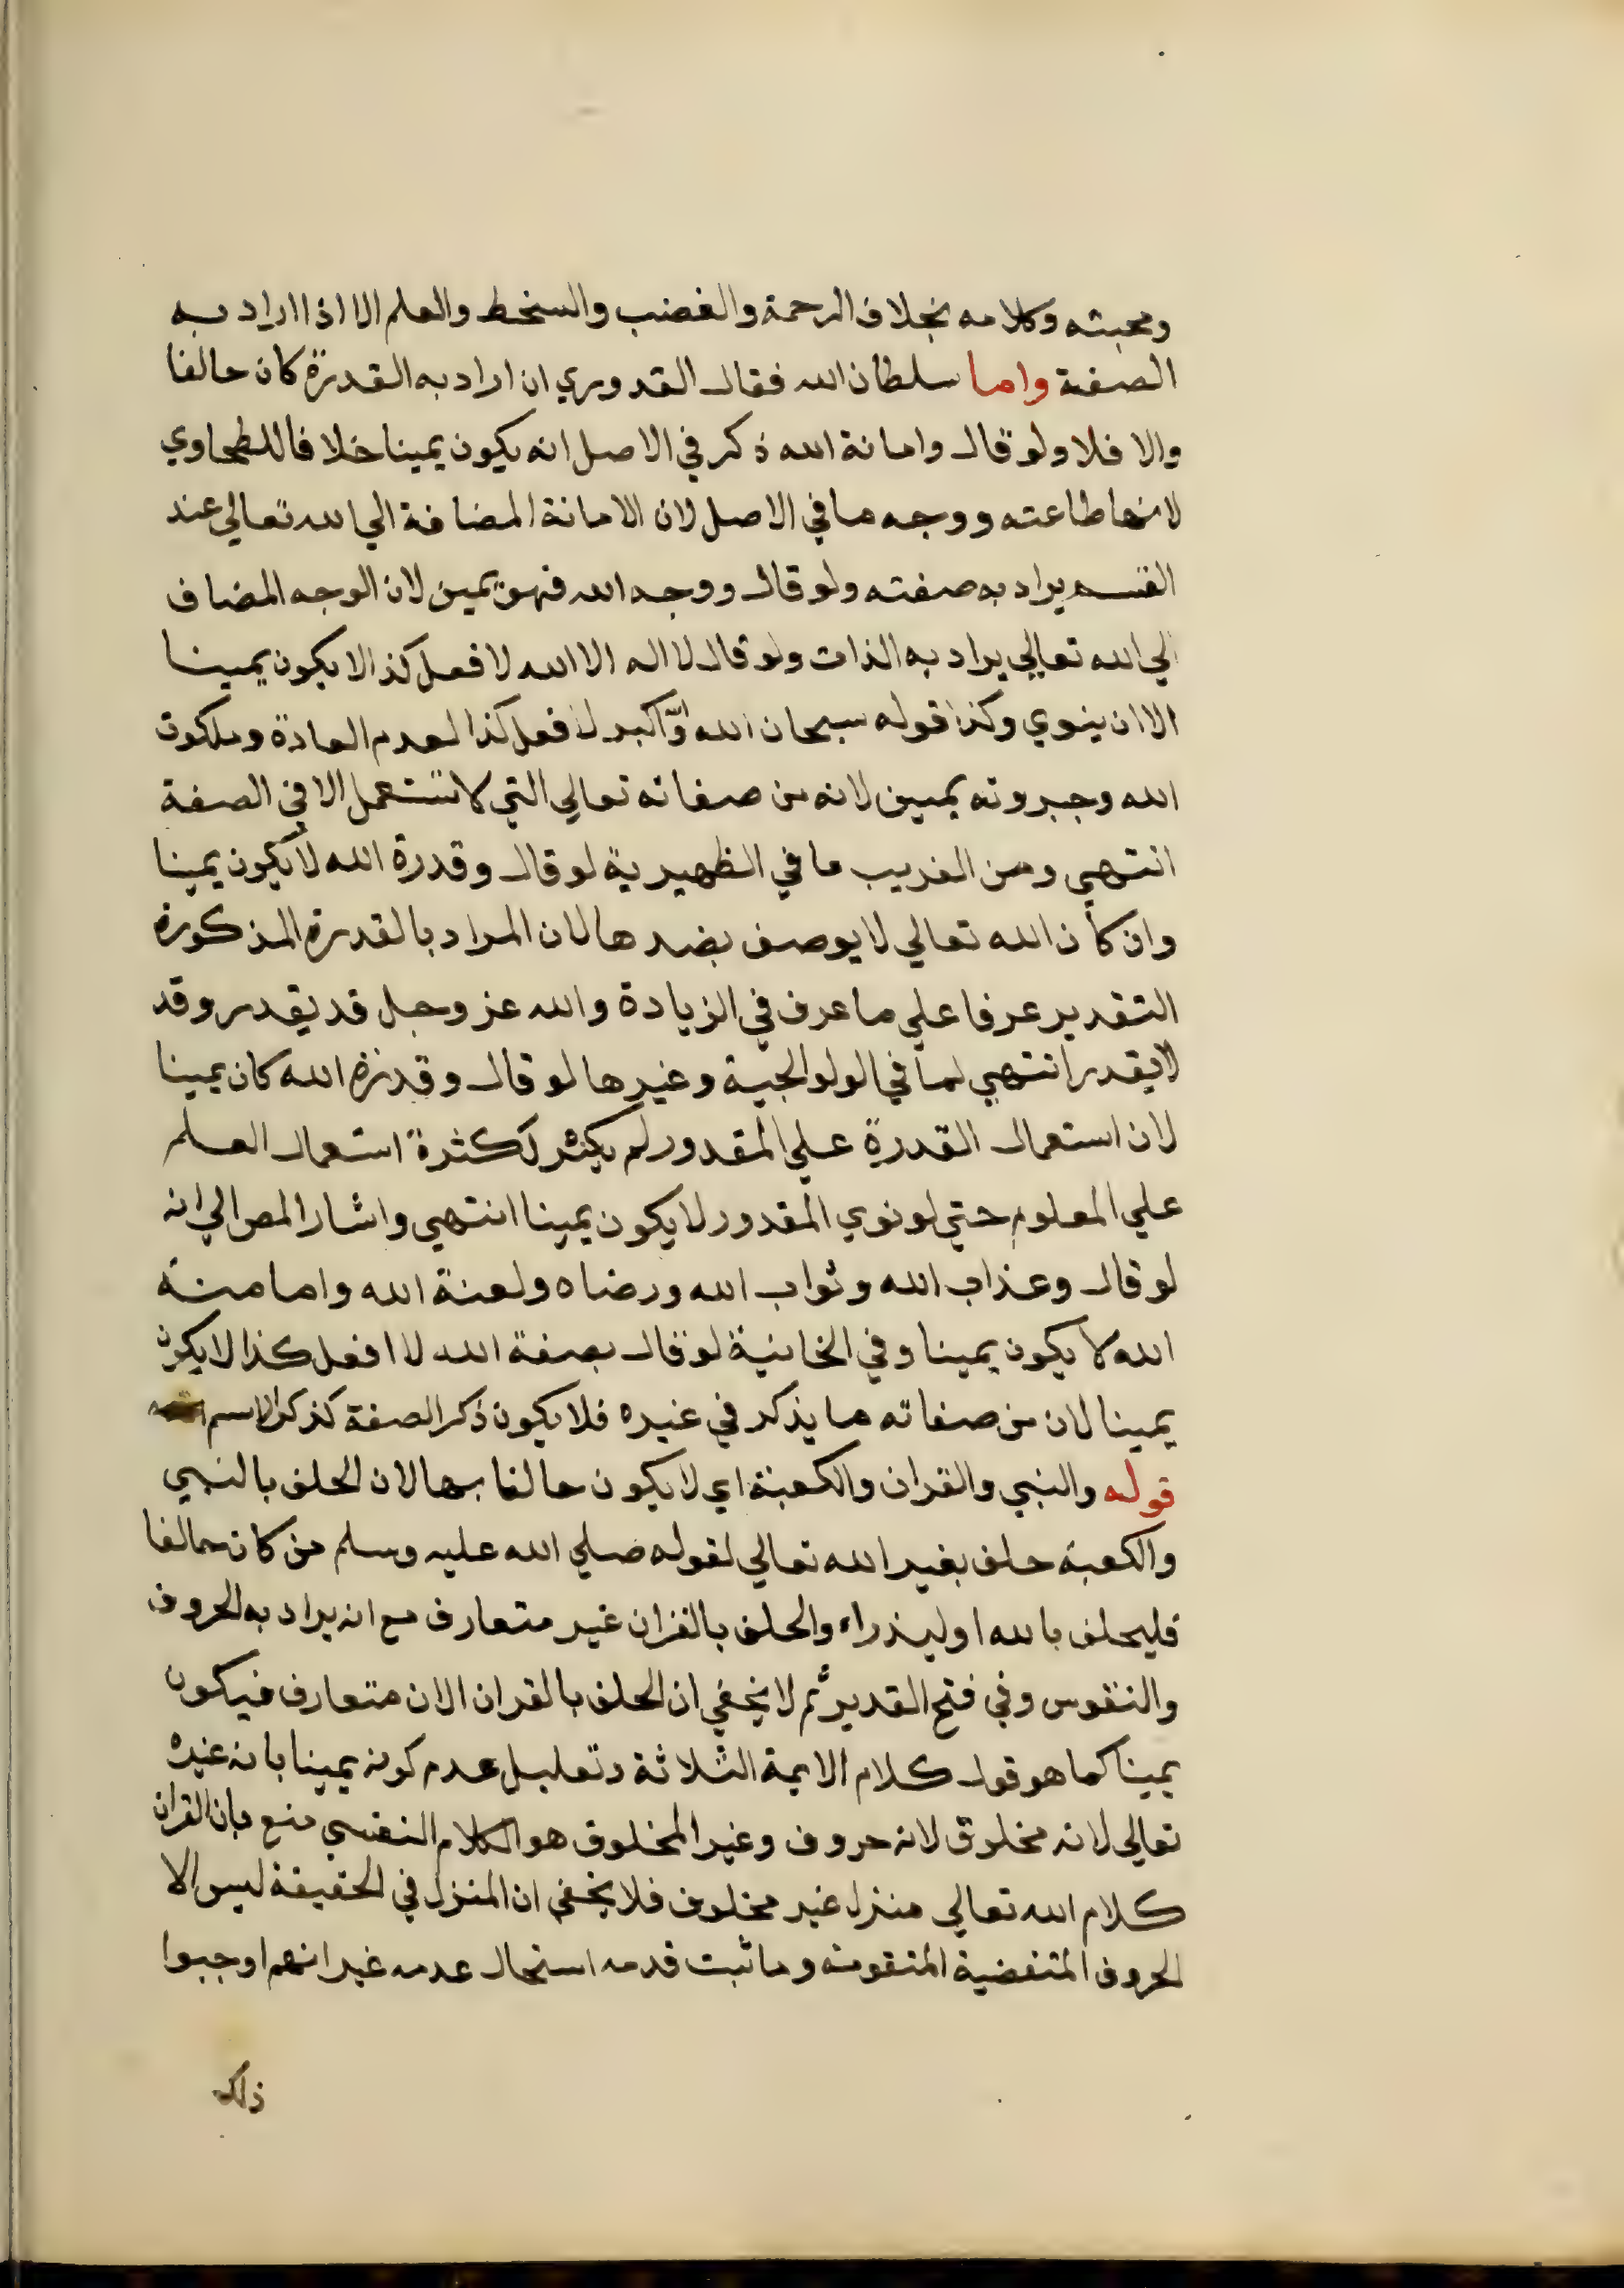 ومحبته وكلامه بخلاف الرحمة والغضب والسخط والعلم الا اذا اراد به
الصفة واما سلطان الله فقال القدوري ان اراد به القدرة كان حالفا
والا فلا ولو قال وامانة الله ذكر في الاصل انه يكون يمينا خلافا للطحاوي
لانها طاعته ووجه ما في الاصل لان الامانة المضافة الي الله تعالي عند
القسم يراد به صفته ولو قال ووجه الله فهو يمين لان الوجه المضاف
الي الله تعالي يراد به الذات ولو قال لا اله الا الله لا فعل كذا لا يكون يمينا
الا ان ينوي وكذا قوله سبحان الله او اكبر لا فعل كذا لعدم العادة وملكوت
الله وجبروته يمين لانه من صفاته تعالي التي لا تستعمل الا في الصفة
انتهي ومن الغريب ما في الظهيرية لو قال وقدرة الله لا يكون يمينا
وان كان الله تعالي لا يوصف بضدها لان المراد بالقدرة المذكورة
التقدير عرفا علي ما عرف في الزيادة والله عز وجل قد يقدر وقد
لا يقدر انتهي لما في الولوالجية وغيرها لو قال وقدرة الله كان يمينا
لان استعمال القدرة علي المقدور لم يكثر لكثرة استعمال العلم
علي المعلوم حتي لو نوي المقدور لا يكون يمينا انتهي واشار المص الي انه
لو قال وعذاب الله وثواب الله ورضاه ولعنة الله واما منة
الله لا يكون يمينا وفي الخانية لو قال بصفة الله لا افعل كذا لا يكون
يمينا لان من صفاته ما يذكر في غيره فلا يكون ذكر الصفة كذكر الاسم
قوله والنبي والقران والكعبة اي لا يكون حالفا بها لان الحلف بالنبي
والكعبة حلف بغير الله تعالي لقوله صلي الله عليه وسلم من كان حالفا
فليحلف بالله او ليذر اه والحلف بالقران غير متعارف مع انه يراد به الحروف
والنقوس وفي فتح القدير ثم لا يخفي ان الحلف بالقران الان متعارف فيكون
يمينا كما هو قول كلام الايمة الثلاثة وتعليل عدم كونه يمينا بانه غيره
تعالي لانه مخلوق لانه حروف وغير المخلوق هو الكلام النفسي منع بان القران
كلام الله تعالي منزل غير مخلوق فلا يخفي ان المنزل في الحقيقة ليس الا
الحروف المتقضية المتقومة وما ثبت قدمه استحال عدمه غير انهم اوجبوا
ذلك